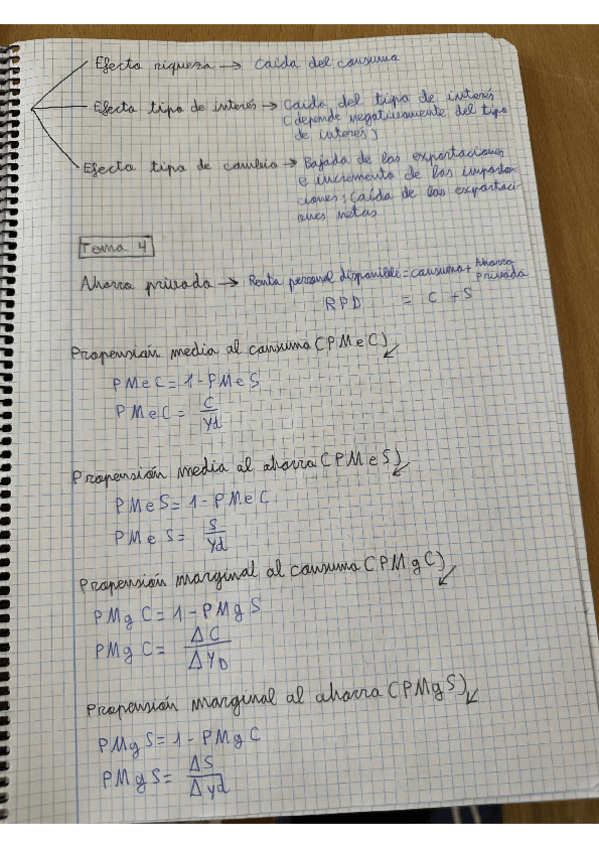 Efecto riqueza → Caída del consumo
Efecto tipo de interés → Caída del tipo de interés
(depende negativamente del tipo
de interés)
Efecto tipo de cambio → Bajada de las exportaciones
e incremento de las importa-
ciones; Caída de las exportaci-
ones netas
Tema 4
Ahorro privado → Renta personal disponible = consumo + Ahorro
Privado
RPD = C + S
Propensión media al consumo (PMeC)
PMeC = 1 - PMeS
PMeC = C / Yd
Propensión media al ahorro (PMeS)
PMeS = 1 - PMeC
PMeS = S / Yd
Propensión marginal al consumo (PMgC)
PMgC = 1 - PMgS
PMgC = ΔC / ΔYD
Propensión marginal al ahorro (PMgS)
PMgS = 1 - PMgC
PMgS = ΔS / ΔYd